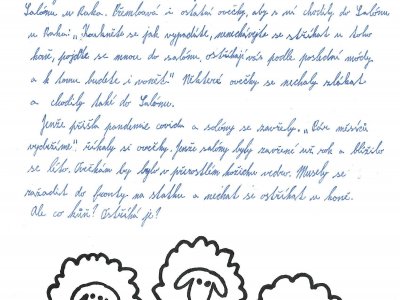 Salónu u Raka. Přemlouvá i ostatní ovečky, aby s ní chodily do Salónu
u Raka: „Koukněte se jak vypadáte, nenechávejte se stříhat u toho
koně, pojďte se mnou do salónu, ostříhají vás podle poslední módy
a k tomu budete i vonět." Některé ovečky se nechaly zlákat
a chodily také do Salónu.
Jenže přišla pandemie covidu a salóny se zavřely. „Pár měsíců
vydržíme" říkaly si ovečky. Jenže salóny byly zavřené už rok a blížilo
se léto. Ovečkám by bylo v přerostlém kožichu vedro. Musely se
zařadit do fronty na statku a nechat se ostříhat u koně.
Ale co kůň? Ostříhá je?